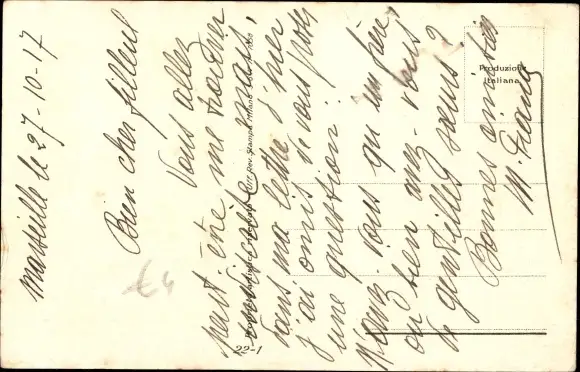 Marseille le 27-10-17
Bien cher filleul
Vous allez
peut être me trouver
curieuse mais,
dans ma lettre d'hier
j'ai omis de vous poser
une question:
N'avez vous qu'un frère,
ou bien avez-vous
de gentilles sœurs?
Bonnes amitiés
M.
Produzione
Italiana
22-1
€4